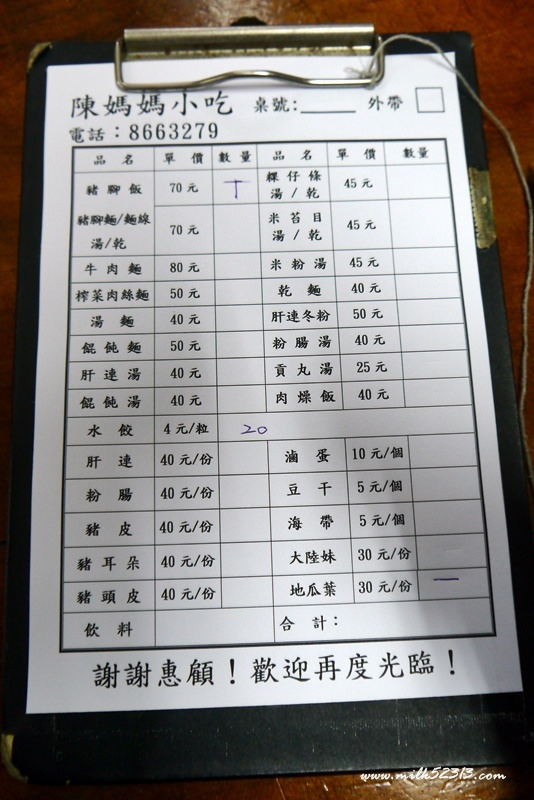 陳媽媽小吃 桌號:_____ 外帶 □
電話：8663279
品名 單價 數量 品名 單價 數量
豬腳飯 70元 丅 粿仔條湯/乾 45元
豬腳麵/麵線湯/乾 70元 米苔目湯/乾 45元
牛肉麵 80元 米粉湯 45元
榨菜肉絲麵 50元 乾麵 40元
湯麵 40元 肝連冬粉 50元
餛飩麵 50元 粉腸湯 40元
肝連湯 40元 貢丸湯 25元
餛飩湯 40元 肉燥飯 40元
水餃 4元/粒 20
肝連 40元/份 滷蛋 10元/個
粉腸 40元/份 豆干 5元/個
豬皮 40元/份 海帶 5元/個
豬耳朵 40元/份 大陸妹 30元/份
豬頭皮 40元/份 地瓜葉 30元/份 一
飲料 合計：
謝謝惠顧！歡迎再度光臨！
www.milk52313.com